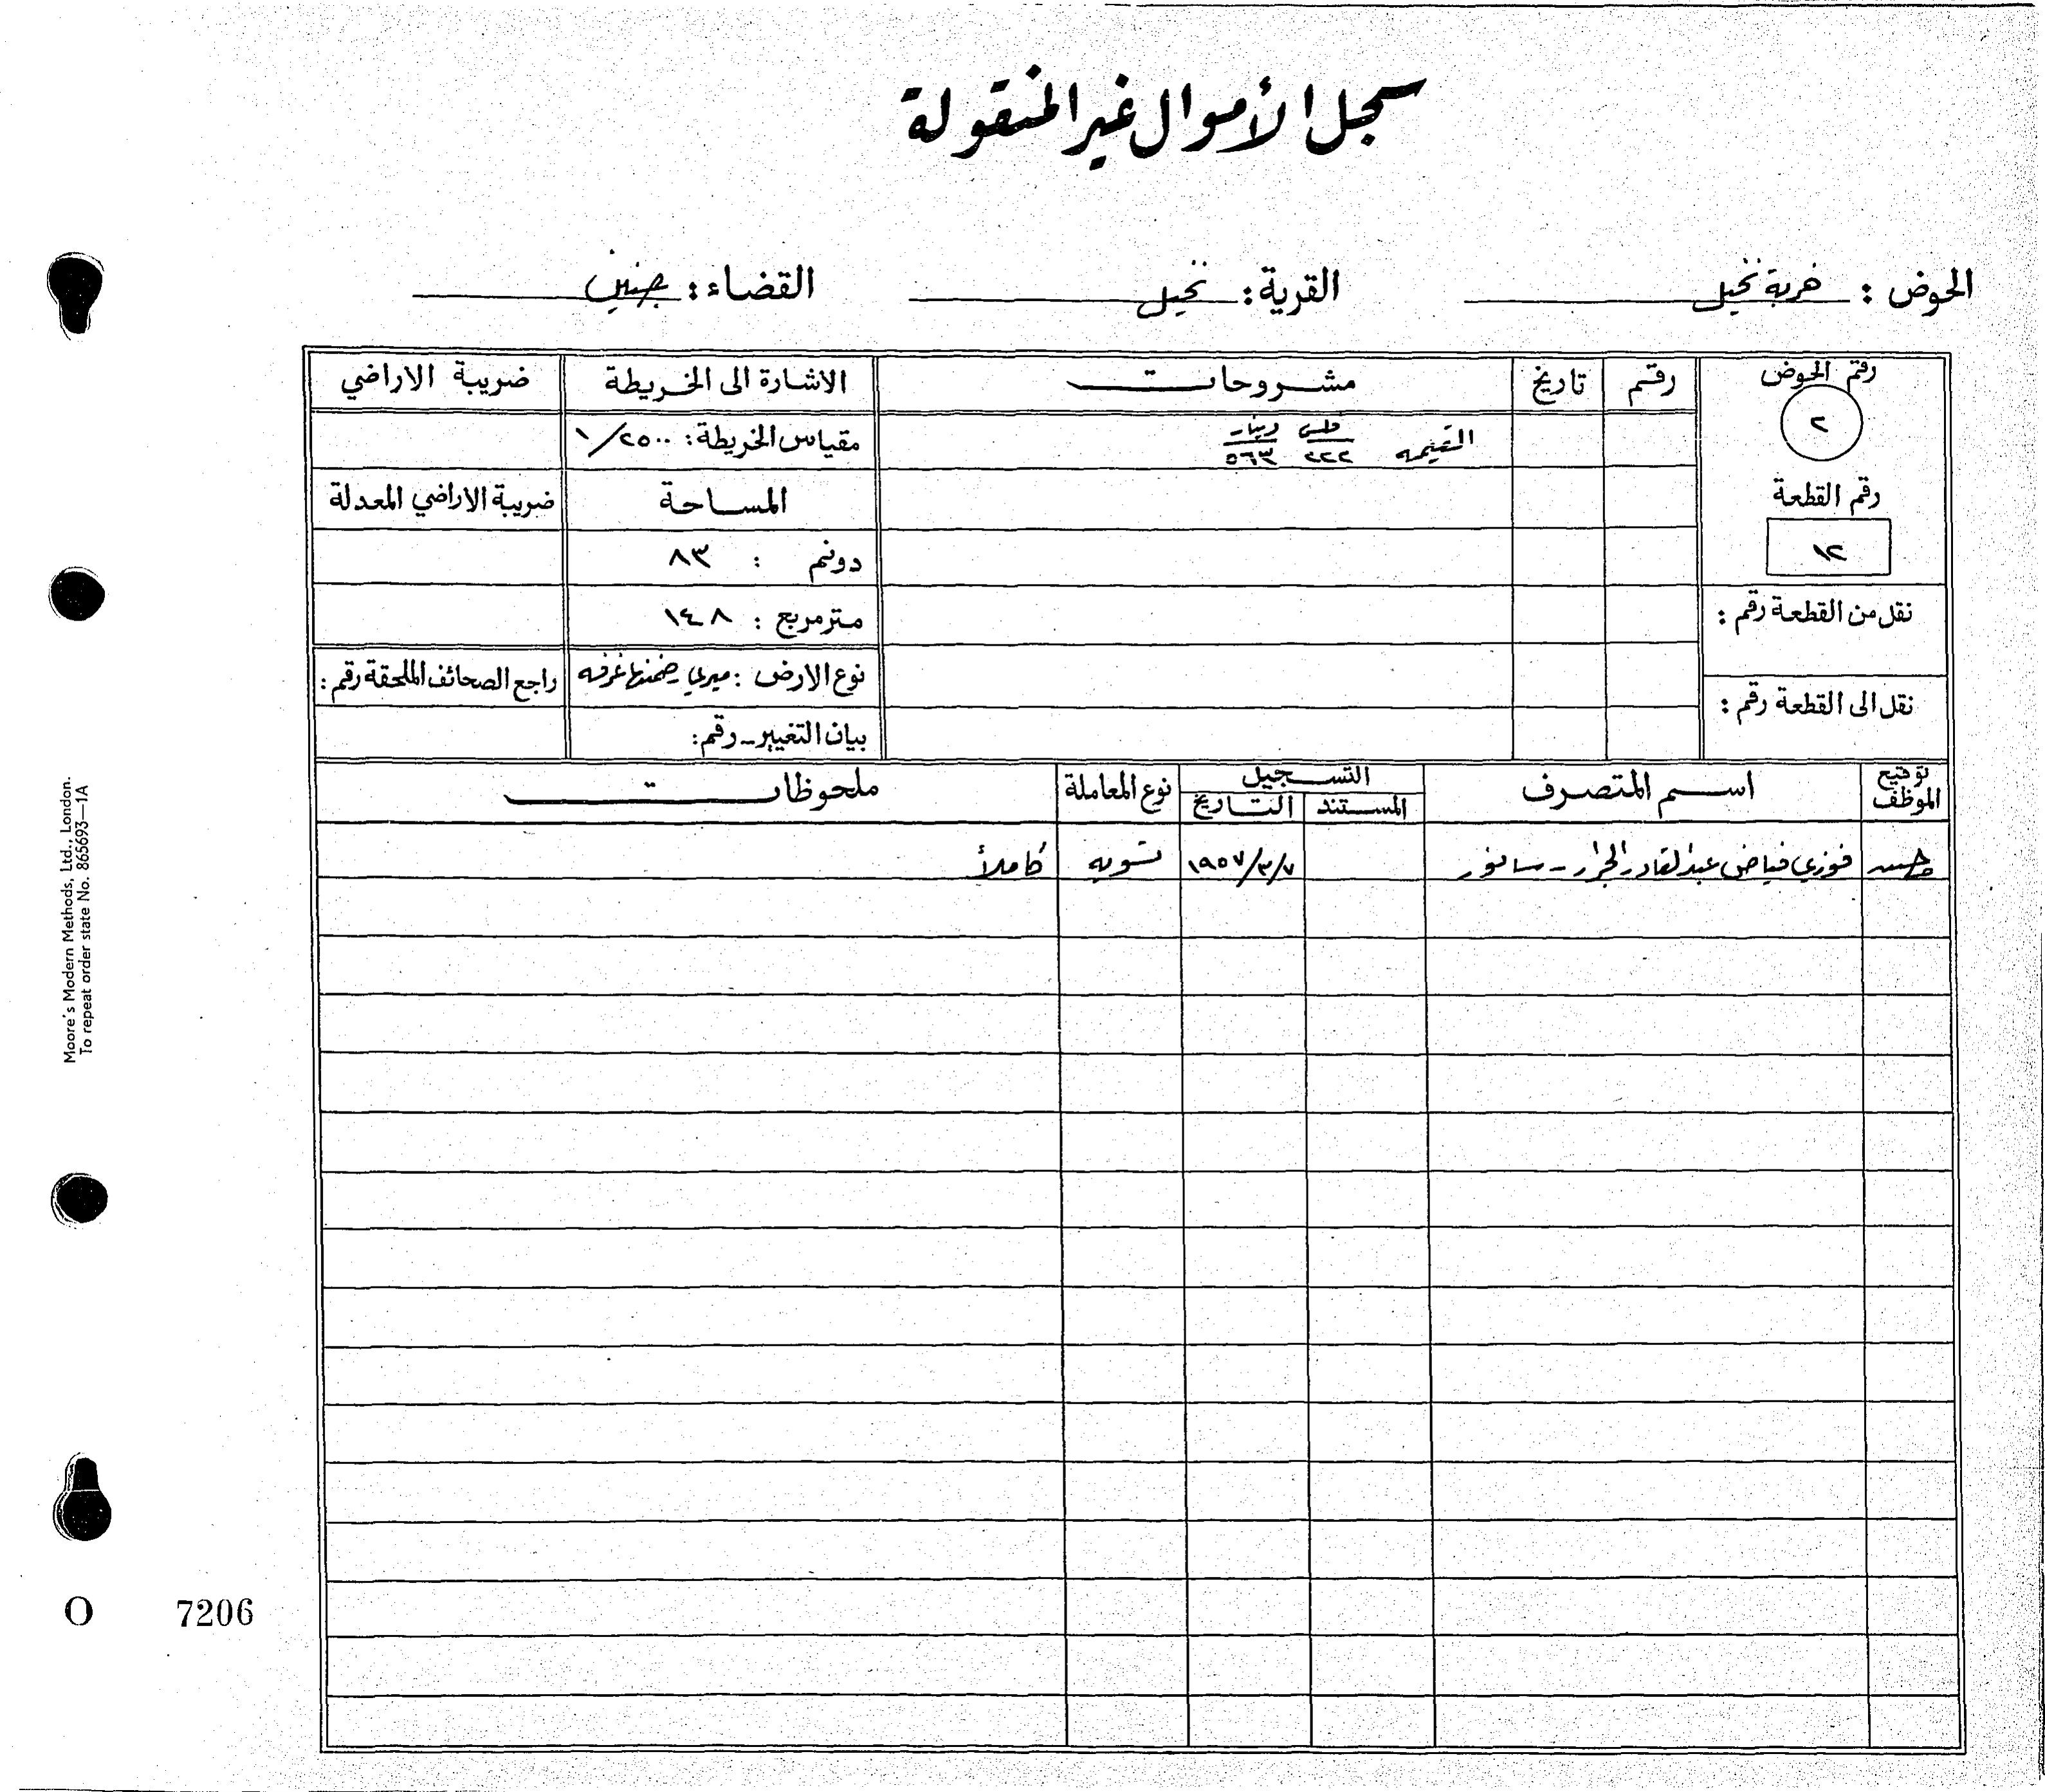 سجل الأموال غير المنقولة
الحوض : خربة نخيل القرية : نخيل القضاء : جنين
رقم الحوض رقم تاريخ مشروحات الاشارة الى الخريطة ضريبة الاراضي
٢ القيمه فلس ٢٢٢ دينار ٥٦٣ مقياس الخريطة : ١/٢٥٠٠
رقم القطعة المساحة ضريبة الاراضي المعدلة
١٢ دونم : ٨٣
نقل من القطعة رقم : متر مربع : ١٤٨
نوع الارض : ميري ضمنها غرفه راجع الصحائف الملحقة رقم :
نقل الى القطعة رقم : بيان التغيير - رقم :
توقيع الموظف اسم المتصرف التسجيل نوع المعاملة ملحوظات
المستند التاريخ
فوزي فياض عبد القادر الجرار - سانور ١٩٥٧/٣/٧ تسويه كاملاً
Moore's Modern Methods, Ltd., London.
To repeat order state No. 865693—1A
O 7206